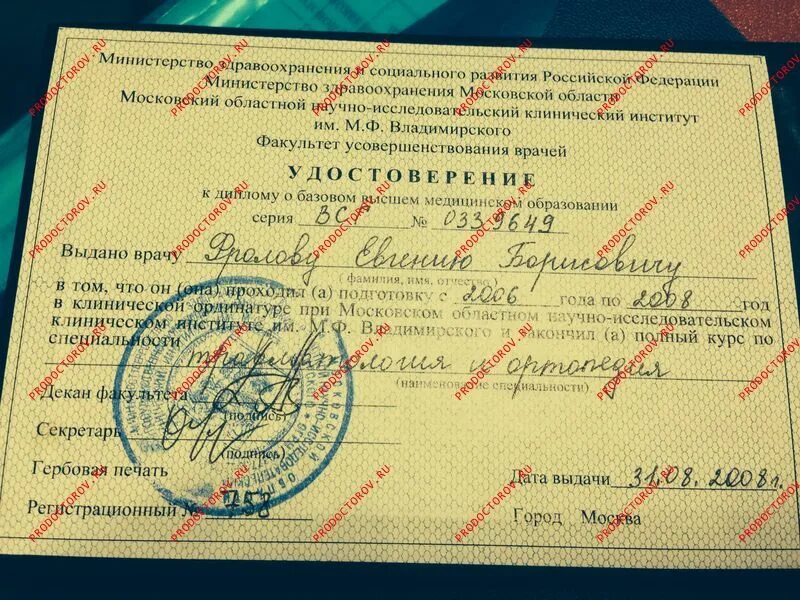 Министерство здравоохранения и социального развития Российской Федерации
Министерство здравоохранения Московской области
Московский областной научно-исследовательский клинический институт
им. М.Ф. Владимирского
Факультет усовершенствования врачей
УДОСТОВЕРЕНИЕ
к диплому о базовом высшем медицинском образовании
серия ВСГ № 0339649
Выдано врачу Фролову Евгению Борисовичу
(фамилия, имя, отчество)
в том, что он (она) проходил (а) подготовку с 2006 года по 2008 год
в клинической ординатуре при Московском областном научно-исследовательском
клиническом институте им. М.Ф. Владимирского и закончил (а) полный курс по
специальности
травматология и ортопедия
(наименование специальности)
Декан факультета
(подпись)
Секретарь
(подпись)
Гербовая печать
Дата выдачи 31.08.2008г.
Регистрационный №
Город Москва
PRODOCTOROV.RU